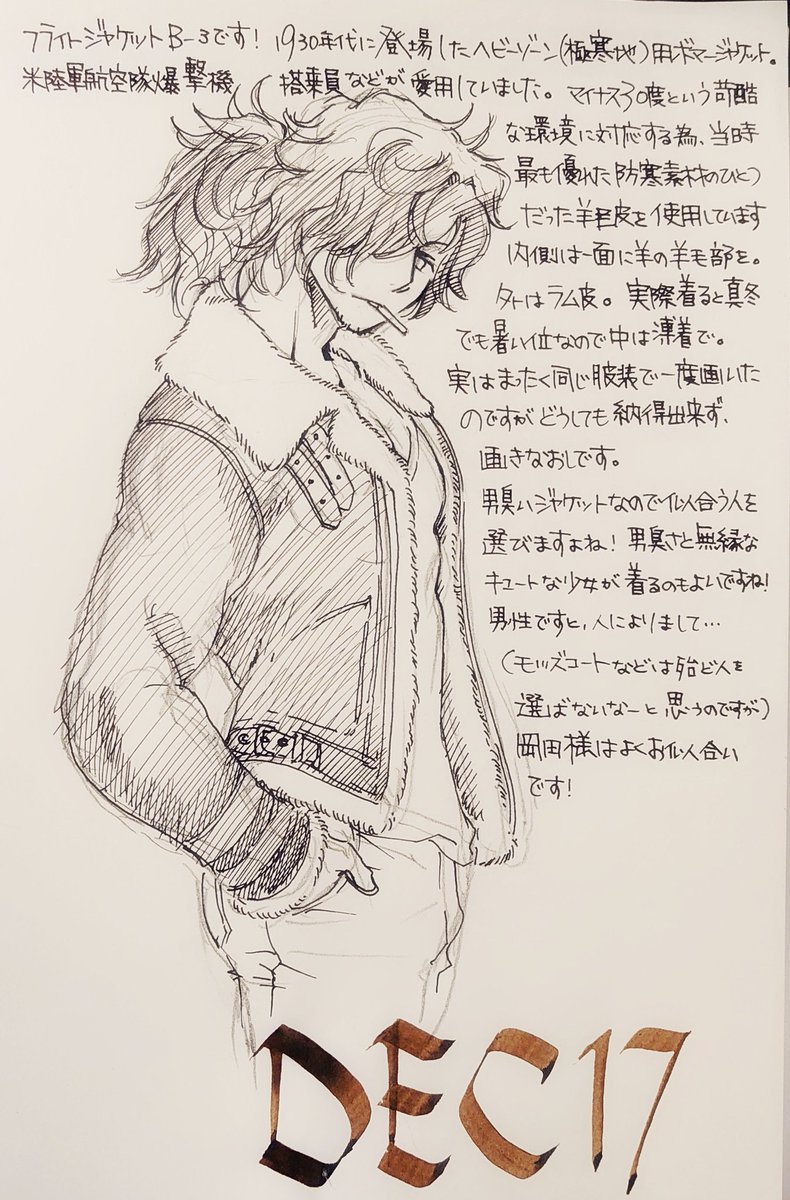 フライトジャケットB-3です! 1930年代に登場したヘビーゾーン(極寒地)用ボマージャケット。
米陸軍航空隊爆撃機 搭乗員などが愛用していました。マイナス30度という苛酷
な環境に対応する為、当時
最も優れた防寒素材のひとつ
だった羊毛皮を使用しています
内側は一面に羊の羊毛部を。
外はラム皮。実際着ると真冬
でも暑い位なので中は薄着で。
実はまったく同じ服装で一度画いた
のですがどうしても納得出来ず、
画きなおしです。
男臭いジャケットなので似合う人を
選びますよね! 男臭さと無縁な
キュートな少女が着るのもよいですね!
男性ですと、人によりまして…
(モッズコートなどは殆ど人を
選ばないなーと思うのですが)
岡田様はよくお似合い
です!
DEC17